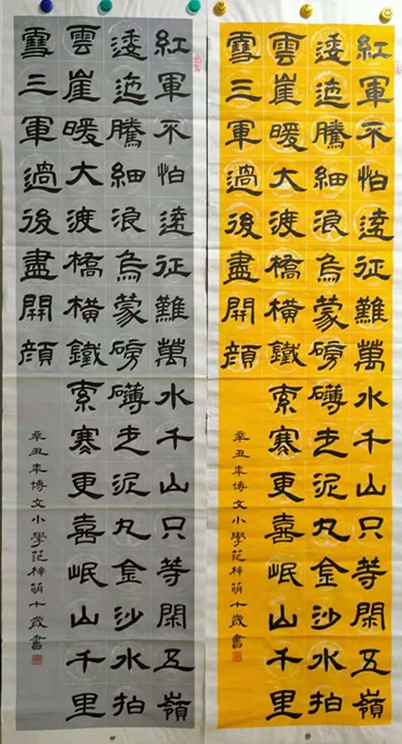 紅軍不怕遠征難萬水千山只等閑五嶺
逶迤騰細浪烏蒙磅礴走泥丸金沙水拍
雲崖暖大渡橋橫鐵索寒更喜岷山千里
雪三軍過後盡開顔
辛丑年博文小學范梓萌十歲書
紅軍不怕遠征難萬水千山只等閑五嶺
逶迤騰細浪烏蒙磅礴走泥丸金沙水拍
雲崖暖大渡橋橫鐵索寒更喜岷山千里
雪三軍過後盡開顔
辛丑年博文小學范梓萌十歲書